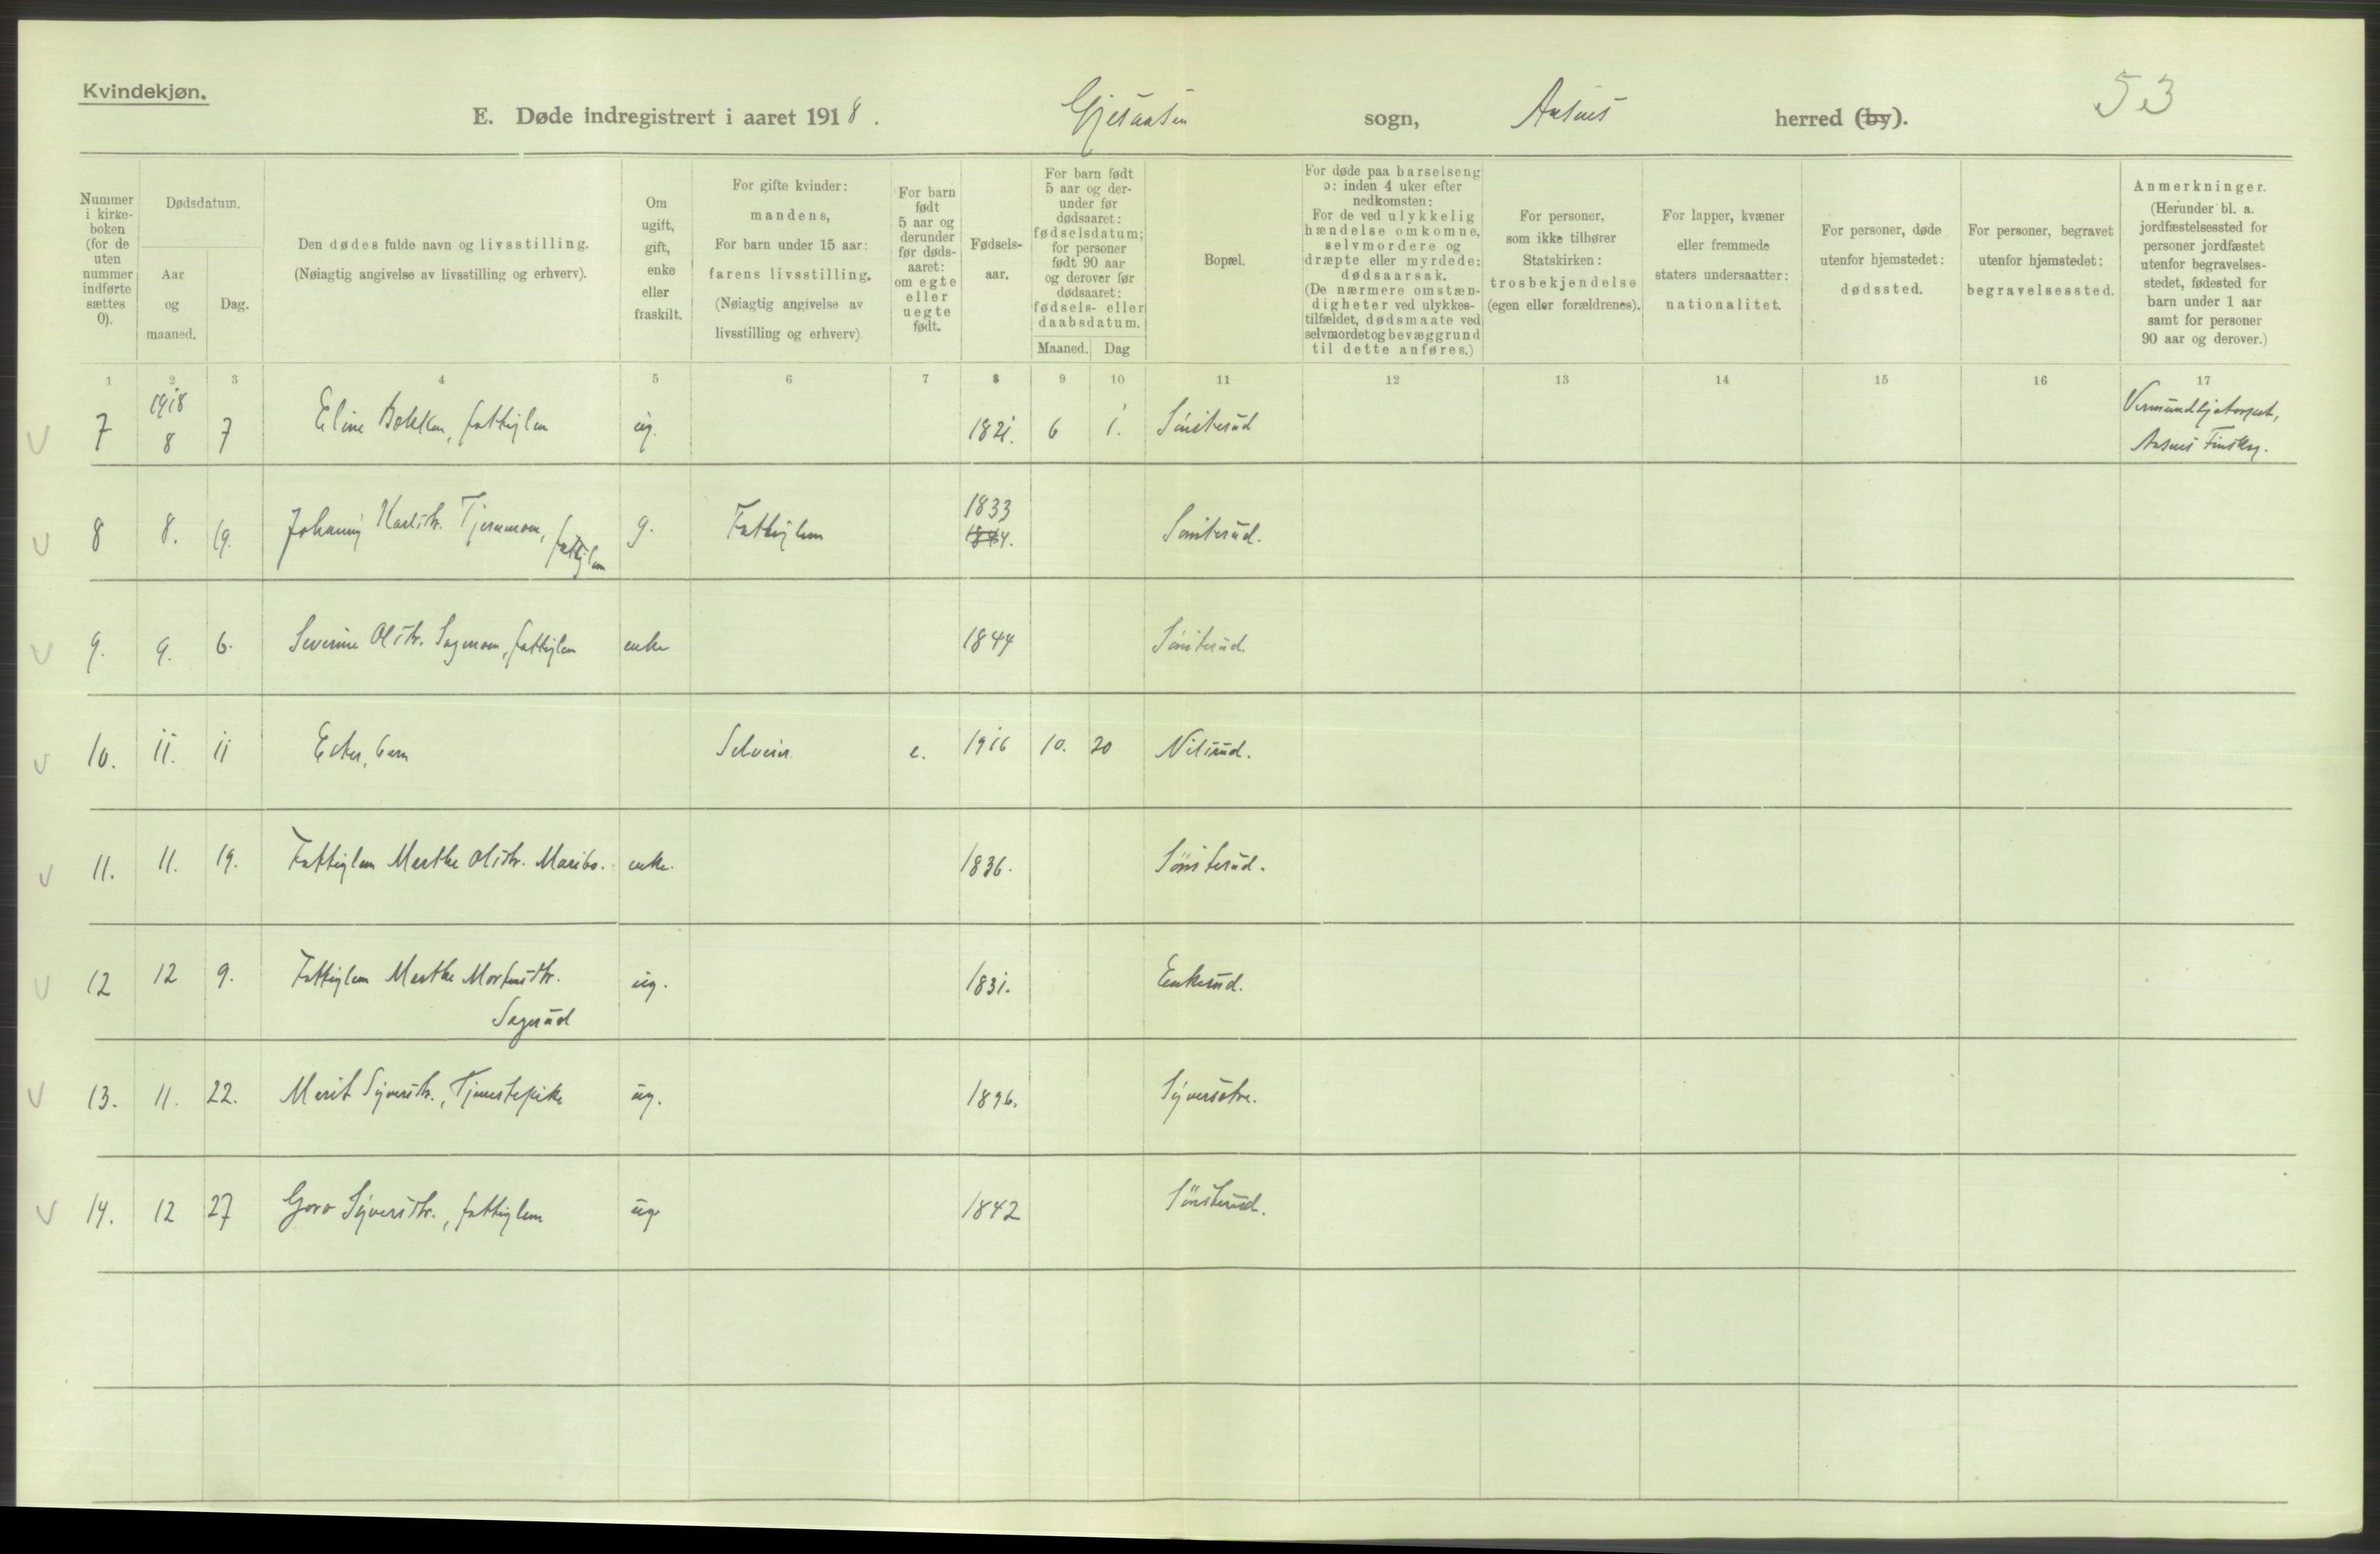 Kvindekjøn.
E. Døde indregistrert i aaret 1918. Gjesaasen sogn, Aasnes herred (by).
53
Nummer i kirke-
boken
(for de
uten
nummer
indførte
sættes
0).
Dødsdatum.
Aar
og
maaned.
Dag.
Den dødes fulde navn og livsstilling.
(Nøiagtig angivelse av livsstilling og erhverv).
Om
ugift,
gift,
enke
eller
fraskilt.
For gifte kvinder:
mandens,
For barn under 15 aar:
farens livsstilling.
(Nøiagtig angivelse av
livsstilling og erhverv)
For barn
født
5 aar og
derunder
før døds-
aaret:
om egte
eller
uegte
født.
Fødsels-
aar.
For barn født
5 aar og der-
under før
dødsaaret:
fødselsdatum;
for personer
født 90 aar
og derover før
dødsaaret:
fødsels- eller
daabsdatum.
Maaned. Dag
Bopæl.
For døde paa barselseng
ɔ: inden 4 uker efter
nedkomsten:
For de ved ulykkelig
hændelse omkomne,
selvmordere og
dræpte eller myrdede:
dødsaarsak.
(De nærmere omstæn-
digheter ved ulykkes-
tilfældet, dødsmaate ved
selvmordet og bevæggrund
til dette anføres.)
For personer,
som ikke tilhører
Statskirken:
trosbekjendelse
(egen eller forældrenes).
For lapper, kvæner
eller fremmede
staters undersaatter:
nationalitet.
For personer, døde
utenfor hjemstedet:
dødssted.
For personer, begravet
utenfor hjemstedet:
begravelsessted.
Anmerkninger.
(Herunder bl. a.
jordfæstelsessted for
personer jordfæstet
utenfor begravelses-
stedet, fødested for
barn under 1 aar
samt for personer
90 aar og derover.)
1 2 3 4 5 6 7 8 9 10 11 12 13 14 15 16 17
1918
7 8 7 Eline Bakken, fattiglem ug. 1821. 6 1. Sönsterud
Aasnes Finskog.
8 8. 19. Johanne Karlsdtr. Tjernmoen, fattiglem g. Fattiglem 1833 1844. Sönsterud.
9. 9. 6. Severine Olsdtr. Sagmoen, fattiglem enke 1844 Sönsterud.
10. 11. 11 Ester, barn Selveier. e. 1916 10. 20 Nilsrud.
11. 11. 19. Fattiglem Marthe Olsdtr. Maribo. enke. 1836. Sönsterud.
12 12 9. Fattiglem Marthe Mortensdtr.
Sagerud ug. 1831. Enkerud.
13. 11. 22. Marit Syversdtr., Tjenestepike ug. 1896. Syversætre.
14. 12 27 Goro Syversdtr., fattiglem ug. 1842 Sönsterud.